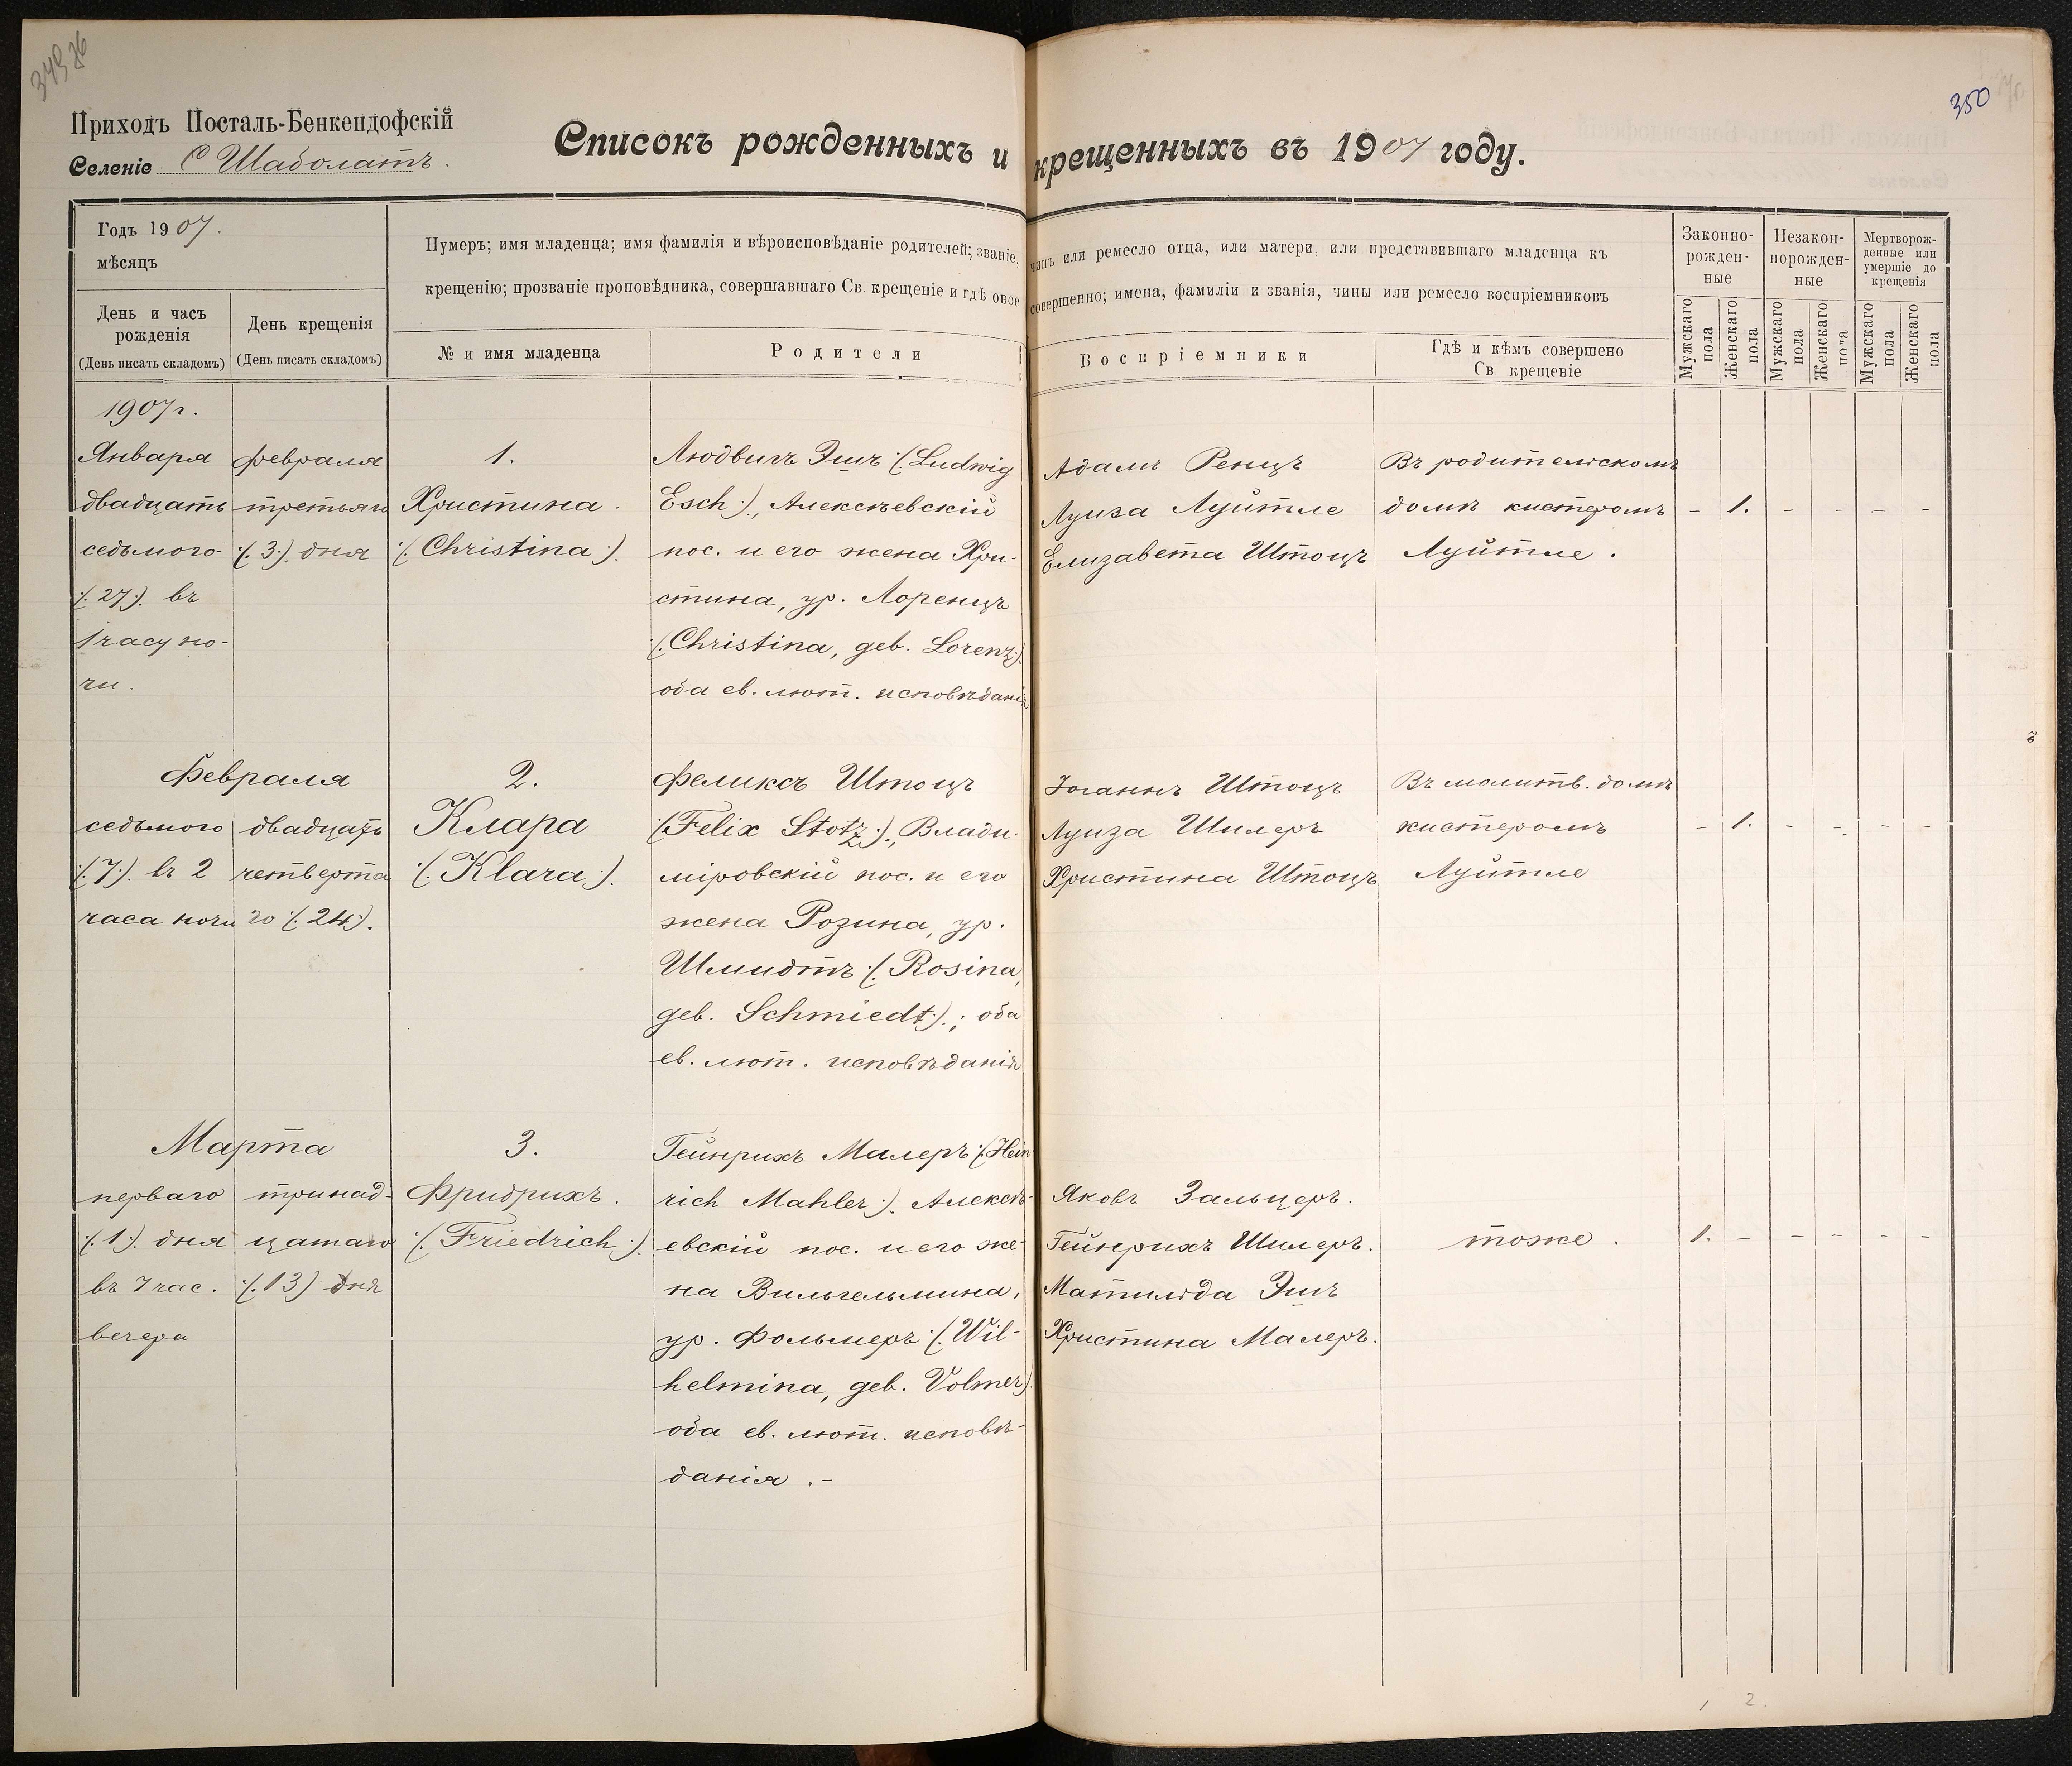 350
Приходъ Посталь-Бенкендофскій
Селеніе С Шаболатъ.
Списокъ рожденныхъ и крещенныхъ въ 1907 году.
Годъ 1907.
мѣсяцъ
День и часъ
рожденія
(День писать складомъ)
День крещенія
(День писать складомъ)
Нумеръ; имя младенца; имя фамилія и вѣроисповѣданіе родителей; званіе, чинъ или ремесло отца, или матери, или представившаго младенца къ
крещенію; прозваніе проповѣдника, совершавшаго Св. крещеніе и гдѣ оное совершенно; имена, фамиліи и званія, чины или ремесло воспріемниковъ
№ и имя младенца
Родители
Воспріемники
Гдѣ и кѣмъ совершено
Св. крещеніе
Законно-
рожден-
ные
Незакон-
норожден-
ные
Мертворож-
денные или
умершіе до
крещенія
Мужскаго
пола
Женскаго
пола
Мужскаго
пола
Женскаго
пола
Мужскаго
пола
Женскаго
пола
1907г.
Января
двадцать
седьмого
(:27:) въ
1 часу но-
чи.
февраля
третьяго
(:3:) дня
1.
Христина.
(:Christina:).
Людвигъ Эшъ (:Ludwig
Esch:), Алексѣевскій
пос. и его жена Хри-
стина, ур. Лоренцъ
(:Christina, geb. Lorenz:)
оба ев. лют. исповѣданія
Адамъ Ренцъ
Луиза Луйтле
Елизавета Штоцъ
Въ родительскомъ
домѣ кистеромъ
Луйтле.
- 1. - - - -
Февраля
седьмого
(:7:) въ 2
часа ночи
двадцать
четверта
го (:24:).
2.
Клара
(:Klara:).
Феликсъ Штоцъ
(:Felix Stotz:), Влади-
міровскій пос. и его
жена Розина, ур.
Шмидтъ (:Rosina,
geb. Schmiedt:); оба
ев. лют. исповѣданія
Іоганнъ Штоцъ
Луиза Шилеръ
Христина Штоцъ
Въ молитв. домѣ
кистеромъ
Луйтле
- 1. - - - -
Марта
перваго
(:1:) дня
въ 7 час.
вечера
тринад-
цатаго
(:13) дня
3.
Фридрихъ.
(:Friedrich:).
Гейнрихъ Малеръ (:Hein
rich Mahler:). Алексѣ-
евскій пос. и его же-
на Вильгельмина,
ур. Фольмеръ (:Wil-
helmina, geb. Volmer:).
оба ев. лют. исповѣ-
данія.-
Яковъ Зальцеръ.
Гейнрихъ Шилеръ.
Матильда Эшъ
Христина Малеръ.
тоже.
1. - - - - -
1 2.